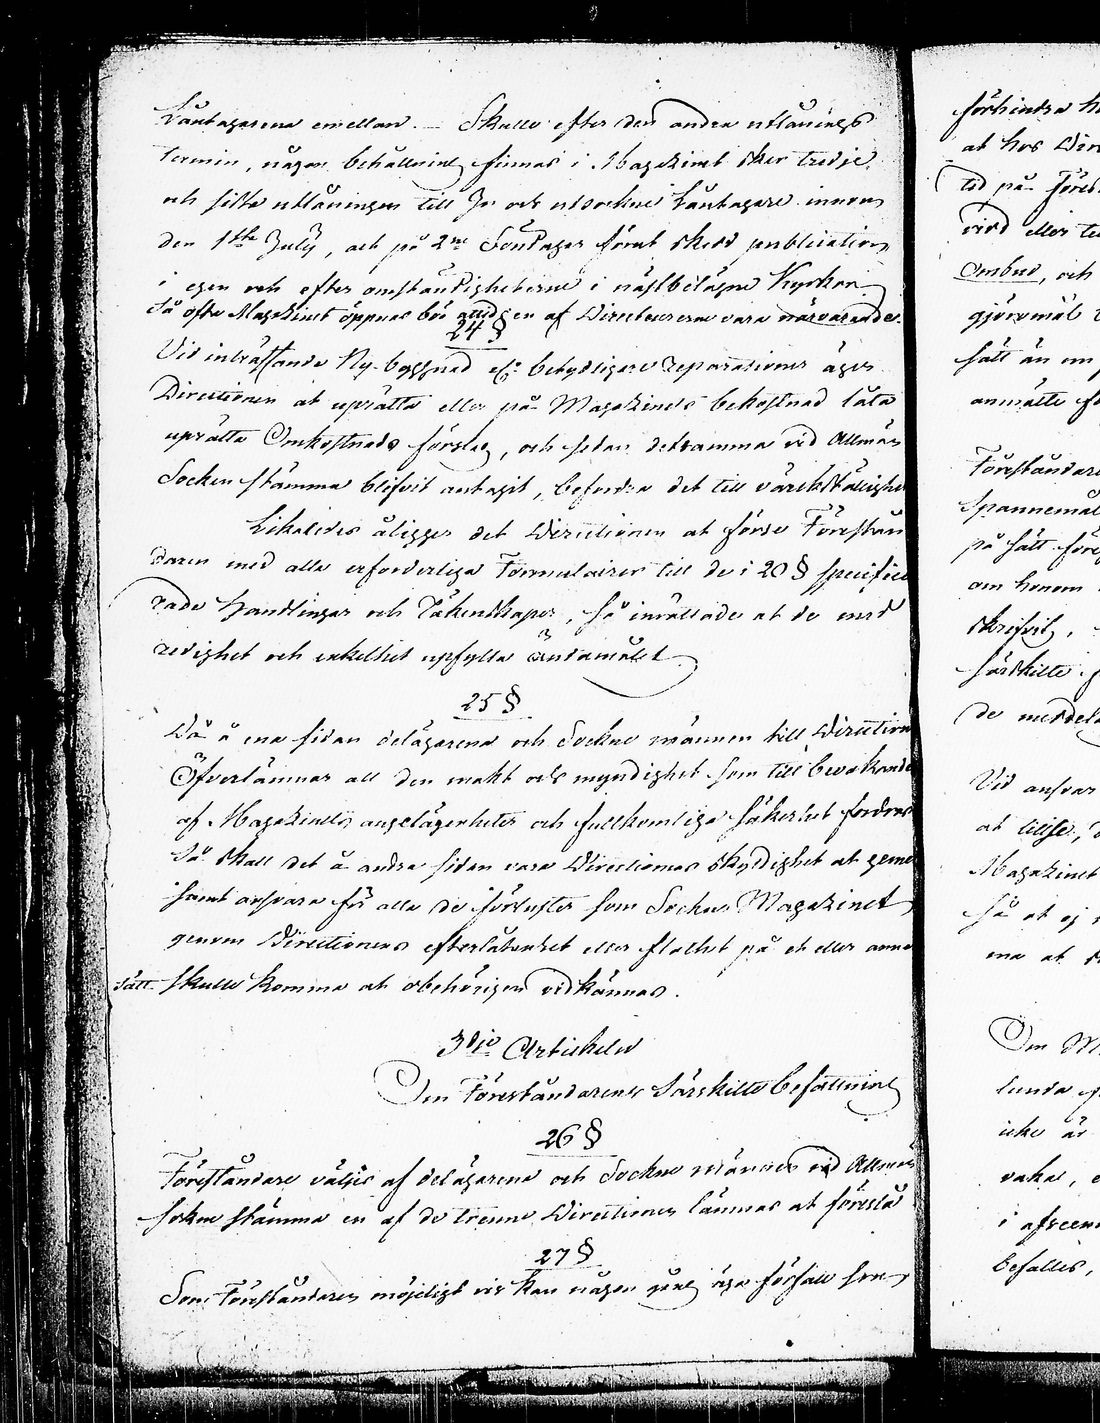 Låntagarena emellan. — Skulle efter den andra utlånings
termin, någon behållning finnas i Magazinet sker tredje
och sista utlåningen till In och utsockne Låntagare innom
den 1ste July, och på 2ne Söndagar förut skedd publication
i egen och efter omständigheterne i näst belägne Kyrkor
Så ofta Magazinet öppnas bör altid en af Directeurerne vara närvarande.
24 §
Vid inträffande Ny-byggnad el: betydligare reparationer äger
Directionen at uprätta eller på Magazinets bekostnad låta
uprätta Omkostnads förslag, och sedan detsamma vid Allmän
Sockenstämma blifvit antagit, befordra det till värkställighet
Likaledes åligger det Directionen at förse Förestån
daren med alla erforderliga Formulairer till de i 20 § specifice
rade Handlingar och Räkenskaper, så inrättade at de med
redighet och enkelhet upfylla ändamålet.
25 §
Då å ena sidan delägarena och Sockne männen till Direction
Öfverlämnar all den makt och myndighet som till bevakande
af Magazinets angelägenheter och fullkomliga säkerhet fordras
Så skall det å andra sidan vara Directionens skyldighet at geme
samt ansvara för alla de förluster som Sockne Magazinet
genom Directionens efterlåtenhet eller flathet på et eller annat
sätt skulle komma at obehörigen vidkännas.
3dje Artikeln
Om Föreståndarens Särskilte befattning
26 §
Föreståndare väljes af delägarena och Sockne männen vid Allmän
sokne stämma en af de trenne Directionen lämnas at föreslå
27 §
Som Föreståndaren möjeligt vis kan någon gång äga förfall som
förhindra h
at hos Dire
tid på före
vird eller te
Ombud, och
gjöromål
sätt än om
anmälte fö
Föreståndare
Spannemål
på sätt före
om honom
skrefvit,
särskilte
de meddel
Vid ansvar
at tillse,
Magazinet
Så at ej
ma at
Om M
lunda
icke är
vaka,
i afseen
befattes,